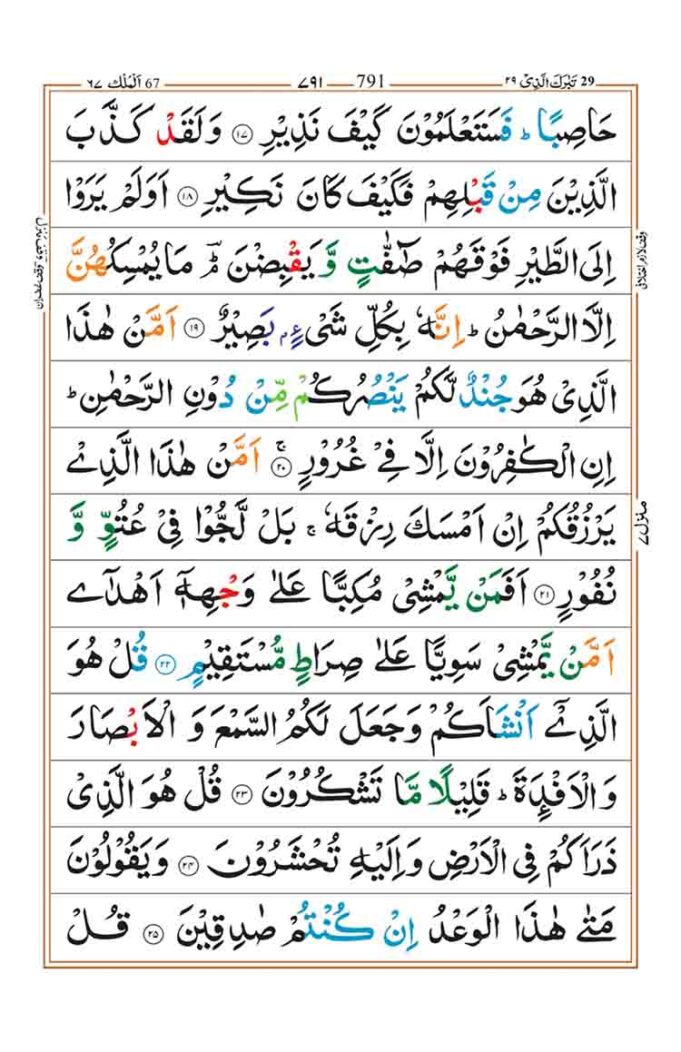 29 تَبٰرَكَ الَّذِىْ ٢٩ 791 ٧٩١ 67 اَلْمُلْك ٦٧
حَاصِبًا ؕ فَسَتَعْلَمُوْنَ كَيْفَ نَذِيْرِ ﴿١٧﴾ وَلَقَدْ كَذَّبَ
الَّذِيْنَ مِنْ قَبْلِهِمْ فَكَيْفَ كَانَ نَكِيْرِ ﴿١٨﴾ اَوَلَمْ يَرَوْا
اِلَى الطَّيْرِ فَوْقَهُمْ صٰٓفّٰتٍ وَّيَقْبِضْنَ ؔۘ مَا يُمْسِكُهُنَّ
اِلَّا الرَّحْمٰنُ ؕ اِنَّهٗ بِكُلِّ شَىْءٍۢ بَصِيْرٌ ﴿١٩﴾ اَمَّنْ هٰذَا
الَّذِىْ هُوَ جُنْدٌ لَّكُمْ يَنْصُرُكُمْ مِّنْ دُوْنِ الرَّحْمٰنِ ؕ
اِنِ الْكٰفِرُوْنَ اِلَّا فِىْ غُرُوْرٍ ۚ ﴿٢٠﴾ اَمَّنْ هٰذَا الَّذِىْ
يَرْزُقُكُمْ اِنْ اَمْسَكَ رِزْقَهٗ ۚ بَلْ لَّجُّوْا فِىْ عُتُوٍّ وَّ
نُفُوْرٍ ﴿٢١﴾ اَفَمَنْ يَّمْشِىْ مُكِبًّا عَلٰى وَجْهِهٖۤ اَهْدٰٓى
اَمَّنْ يَّمْشِىْ سَوِيًّا عَلٰى صِرَاطٍ مُّسْتَقِيْمٍ ﴿٢٢﴾ قُلْ هُوَ
الَّذِىْۤ اَنْشَاَكُمْ وَجَعَلَ لَكُمُ السَّمْعَ وَ الْاَبْصَارَ
وَالْاَفْـِٕدَةَ ؕ قَلِيْلًا مَّا تَشْكُرُوْنَ ﴿٢٣﴾ قُلْ هُوَ الَّذِىْ
ذَرَاَكُمْ فِى الْاَرْضِ وَاِلَيْهِ تُحْشَرُوْنَ ﴿٢٤﴾ وَيَقُوْلُوْنَ
مَتٰى هٰذَا الْوَعْدُ اِنْ كُنْتُمْ صٰدِقِيْنَ ﴿٢٥﴾ قُلْ
منزل ٧